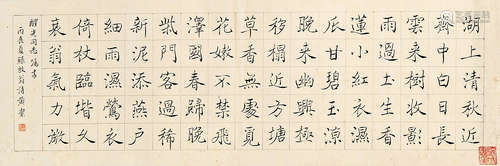 湖上清秋近
齋中白日長
雲來樹收影
雨過土生香
蓮小紅衣濕
瓜甘碧玉涼
晚來幽興極
移榻近方塘
草無處覓
花嫩不禁飛
澤國春歸晚
柴門客過稀
新泥添燕戶
細雨濕鶯衣
倚杖臨堦久
衰翁氣力微
同志属書
丙辰夏